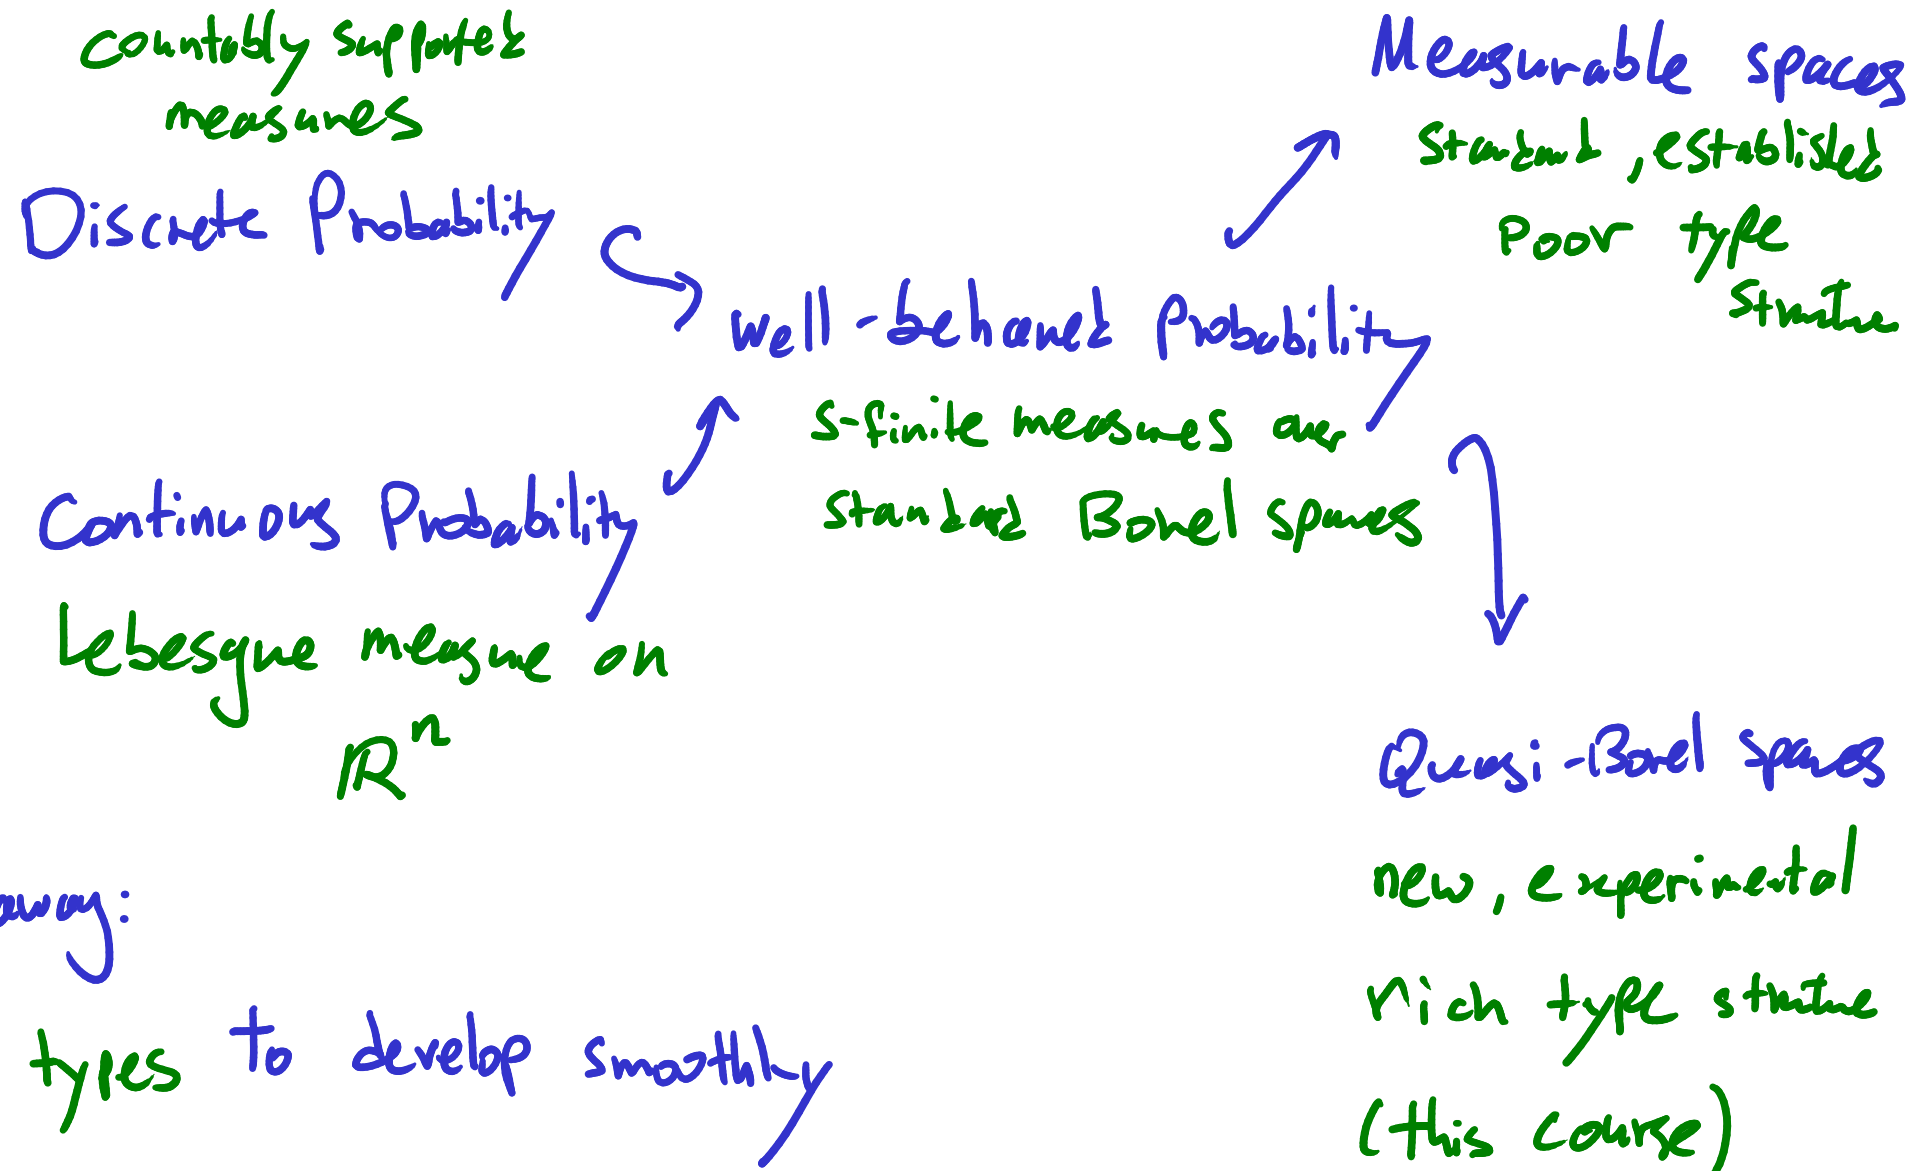 countably supported
measures
Discrete Probability
Continuous Probability
Lebesgue measure on
ℝⁿ
well-behaved Probability
s-finite measures over
standard Borel spaces
Measurable spaces
standard, established
poor type
structure
Quasi-Borel spaces
new, experimental
rich type structure
(this course)
eaway:
types to develop smoothly